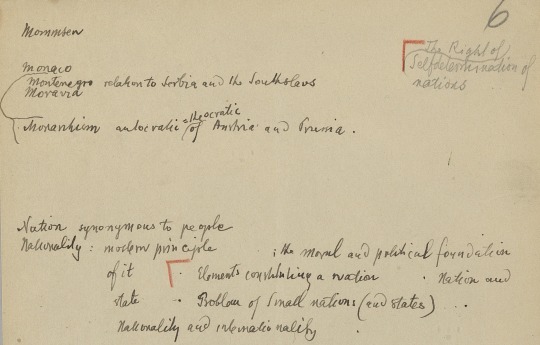 6
Mommsen
The Right of
Selfdetermination of
nations
Monaco
Montenegro relation to Serbia and the Southslavs
Moravia
Monarchism autocratic = theocratic of Austria and Prussia.
Nation synonymous to people
Nationality: modern principle ; the moral and political foundation
of it · Elements constituting a nation · Nation and
state · Problem of small nations (and states) . .
Nationality and internationality .